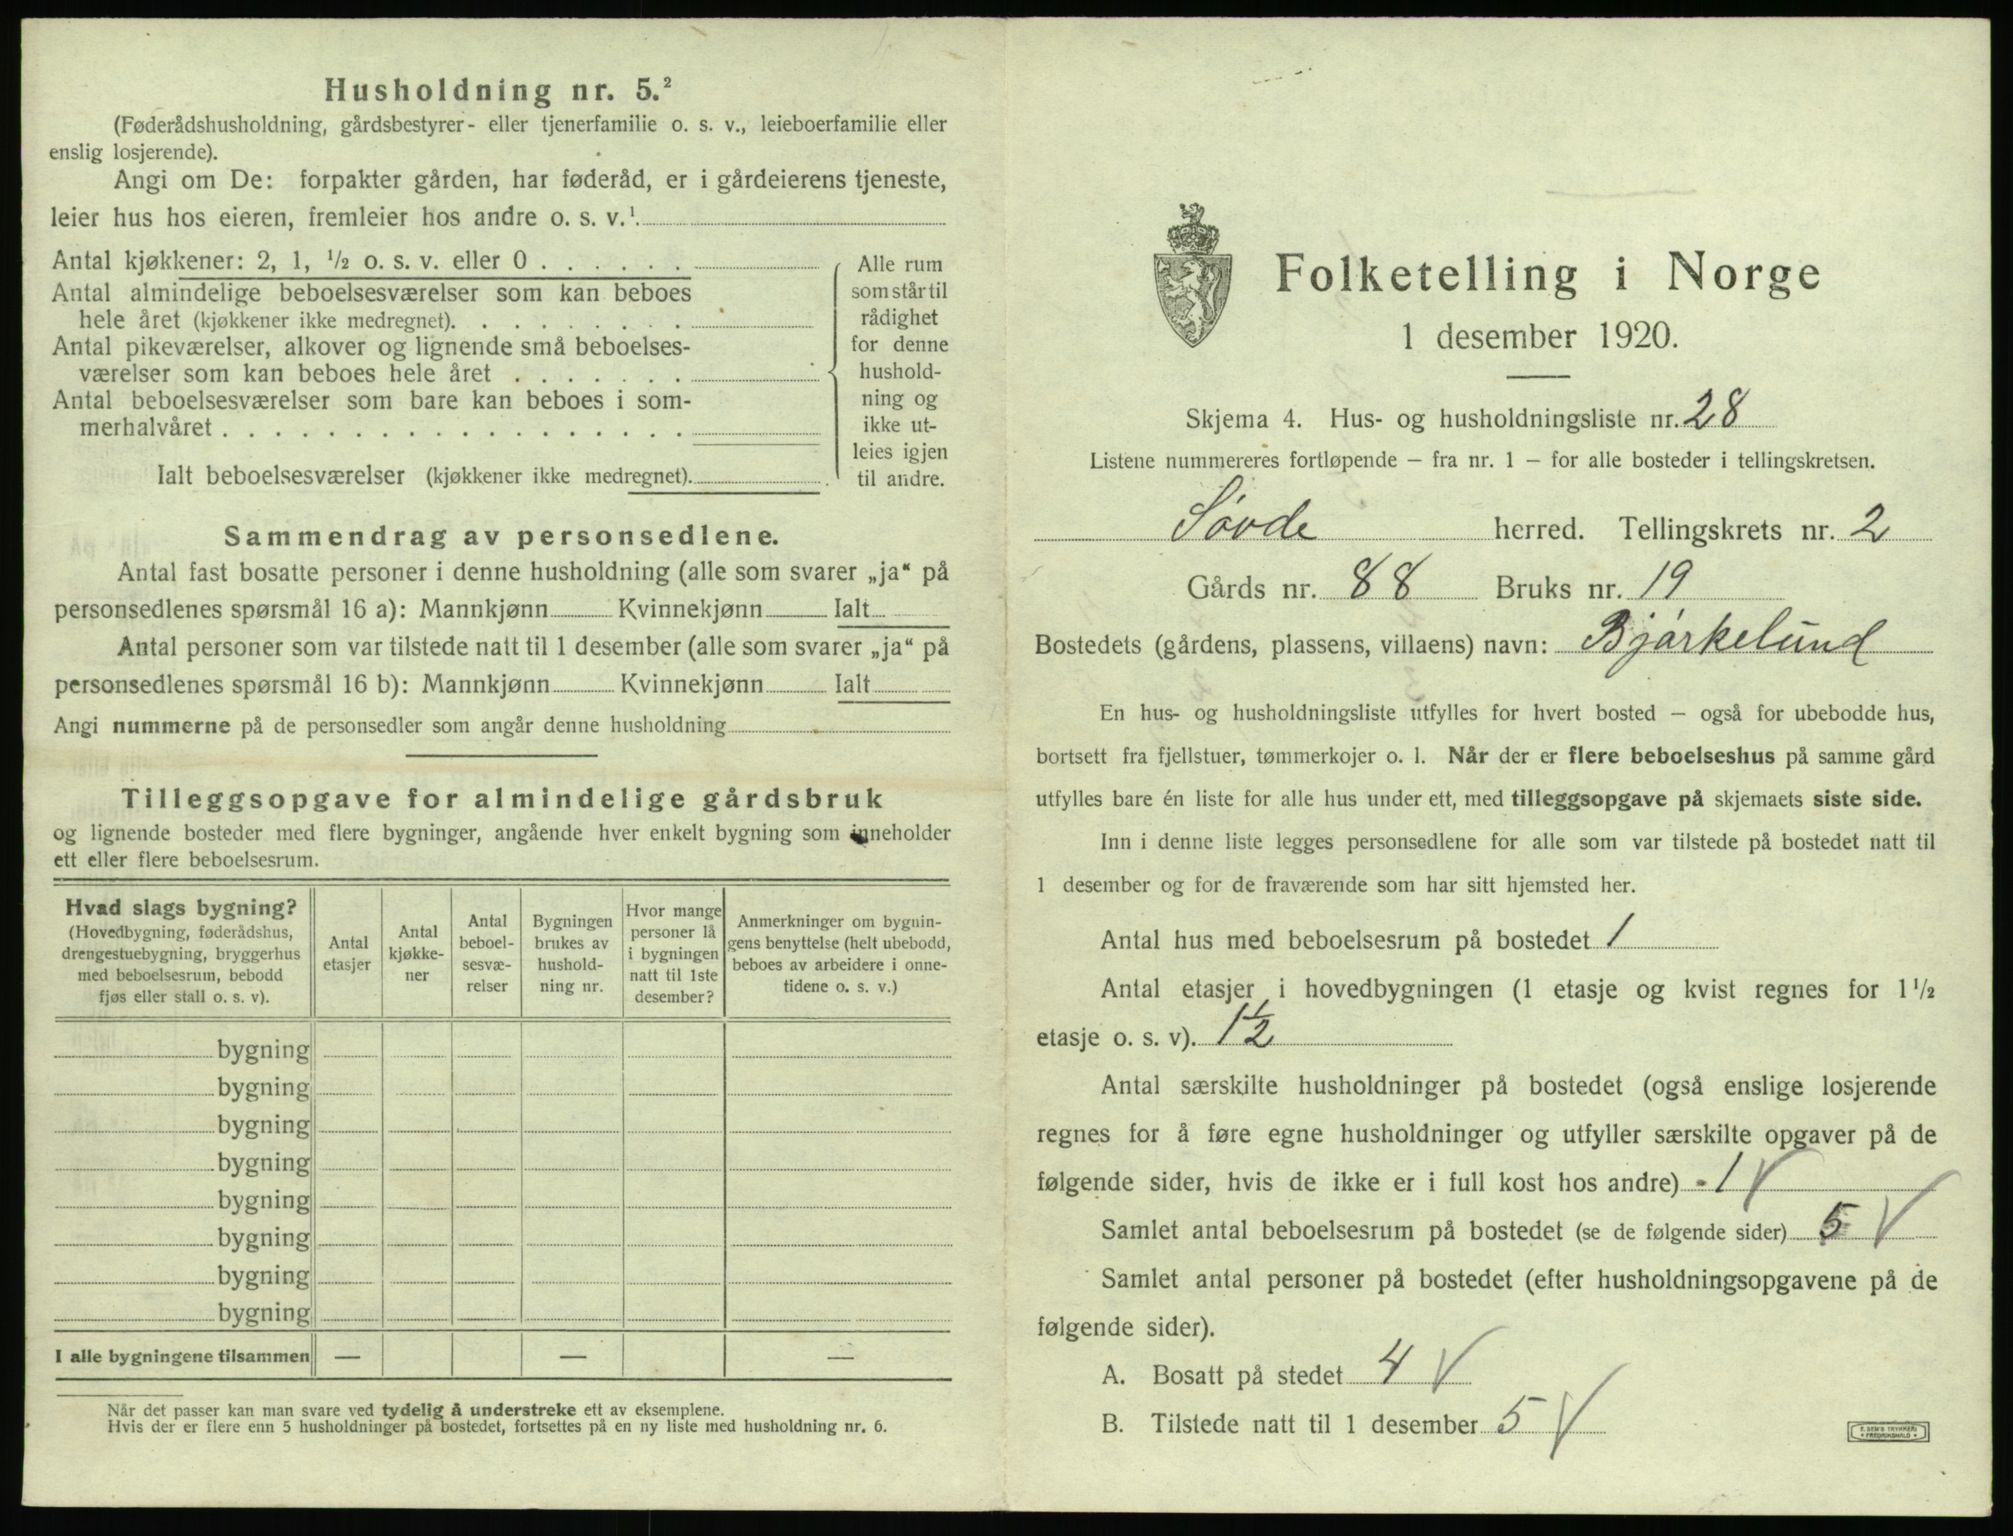 Husholdning nr. 5.²
(Føderådshusholdning, gårdsbestyrer- eller tjenerfamilie o. s. v., leieboerfamilie eller
enslig losjerende).
Angi om De: forpakter gården, har føderåd, er i gårdeierens tjeneste,
leier hus hos eieren, fremleier hos andre o. s. v.¹
Antal kjøkkener: 2, 1, ½ o. s. v. eller 0
Antal almindelige beboelsesværelser som kan beboes
hele året (kjøkkener ikke medregnet).
Antal pikeværelser, alkover og lignende små beboelses-
værelser som kan beboes hele året
Antal beboelsesværelser som bare kan beboes i som-
merhalvåret
Ialt beboelsesværelser (kjøkkener ikke medregnet).
Alle rum
som står til
rådighet
for denne
hushold-
ning og
ikke ut-
leies igjen
til andre.
Sammendrag av personsedlene.
Antal fast bosatte personer i denne husholdning (alle som svarer „ja“ på
personsedlenes spørsmål 16 a): Mannkjønn Kvinnekjønn Ialt
Antal personer som var tilstede natt til 1 desember (alle som svarer „ja“ på
personsedlenes spørsmål 16 b): Mannkjønn Kvinnekjønn Ialt
Angi nummerne på de personsedler som angår denne husholdning
Tilleggsopgave for almindelige gårdsbruk
og lignende bosteder med flere bygninger, angående hver enkelt bygning som inneholder
ett eller flere beboelsesrum.
Hvad slags bygning?
(Hovedbygning, føderådshus,
drengestuebygning, bryggerhus
med beboelsesrum, bebodd
fjøs eller stall o. s. v).
Antal
etasjer
Antal
kjøkke-
ner
Antal
beboel-
sesvæ-
relser
Bygningen
brukes av
hushold-
ning nr.
Hvor mange
personer lå
i bygningen
natt til 1ste
desember?
Anmerkninger om bygnin-
gens benyttelse (helt ubebodd,
beboes av arbeidere i onne-
tidene o. s. v.)
bygning
bygning
bygning
bygning
bygning
bygning
bygning
bygning
I alle bygningene tilsammen — — —
Når det passer kan man svare ved tydelig å understreke ett av eksemplene.
Hvis der er flere enn 5 husholdninger på bostedet, fortsettes på en ny liste med husholdning nr. 6.
Folketelling i Norge
1 desember 1920.
Skjema 4. Hus- og husholdningsliste nr. 28
Listene nummereres fortløpende – fra nr. 1 – for alle bosteder i tellingskretsen.
Søvde herred. Tellingskrets nr. 2
Gårds nr. 88 Bruks nr. 19
Bostedets (gårdens, plassens, villaens) navn: Bjørkelund
En hus- og husholdningsliste utfylles for hvert bosted – også for ubebodde hus,
bortsett fra fjellstuer, tømmerkojer o. l. Når der er flere beboelseshus på samme gård
utfylles bare én liste for alle hus under ett, med tilleggsopgave på skjemaets siste side.
Inn i denne liste legges personsedlene for alle som var tilstede på bostedet natt til
1 desember og for de fraværende som har sitt hjemsted her.
Antal hus med beboelsesrum på bostedet 1
Antal etasjer i hovedbygningen (1 etasje og kvist regnes for 1½
etasje o. s. v). 1½
Antal særskilte husholdninger på bostedet (også enslige losjerende
regnes for å føre egne husholdninger og utfyller særskilte opgaver på de
følgende sider, hvis de ikke er i full kost hos andre) 1
Samlet antal beboelsesrum på bostedet (se de følgende sider) 5
Samlet antal personer på bostedet (efter husholdningsopgavene på de
følgende sider).
A. Bosatt på stedet 4
B. Tilstede natt til 1 desember 5